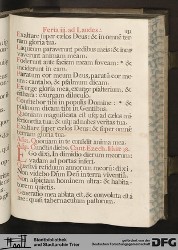 Feria iij. ad Laudes.
Exaltare super cęlos Deus: & in omnē ter-
ram gloria tua.
Laqueum paraverunt pedibus meis: & incur-
vaverunt animam meam.
Foderunt ante faciem meam foveam: &
inciderunt in eam.
Paratum cor meum Deus, paratū cor me-
um: cantabo, & psalmum dicam.
Exurge gloria mea, exurge psalterium, &
cithara: exurgam diluculo.
Confitebor tibi in populis Domine: &
psalmum dicam tibi in Gentibus.
Quoniam magnificata est usque ad cęlos mi-
sericordia tua: & usque ad nubes veritas tua.
Exaltare super cęlos Deus: & super omnem
terram gloria tua.
Cant. Ezech. Isaiæ
Ego dixi, in dimidio dierum meorum:
vadam ad portas inferi.
Quæsivi residuum annorum meorū: dixi,
Non videbo Dñm Deū in terra viventiū.
Non aspiciam hominem ultra: & habita-
torem quietis.
Generatio mea ablata est, & convoluta est à
me: quasi tabernaculum pastorum.
Stadtbibliothek
und Stadtarchiv Trier
Gefördert durch die
Deutsche Forschungsgemeinschaft
DFG